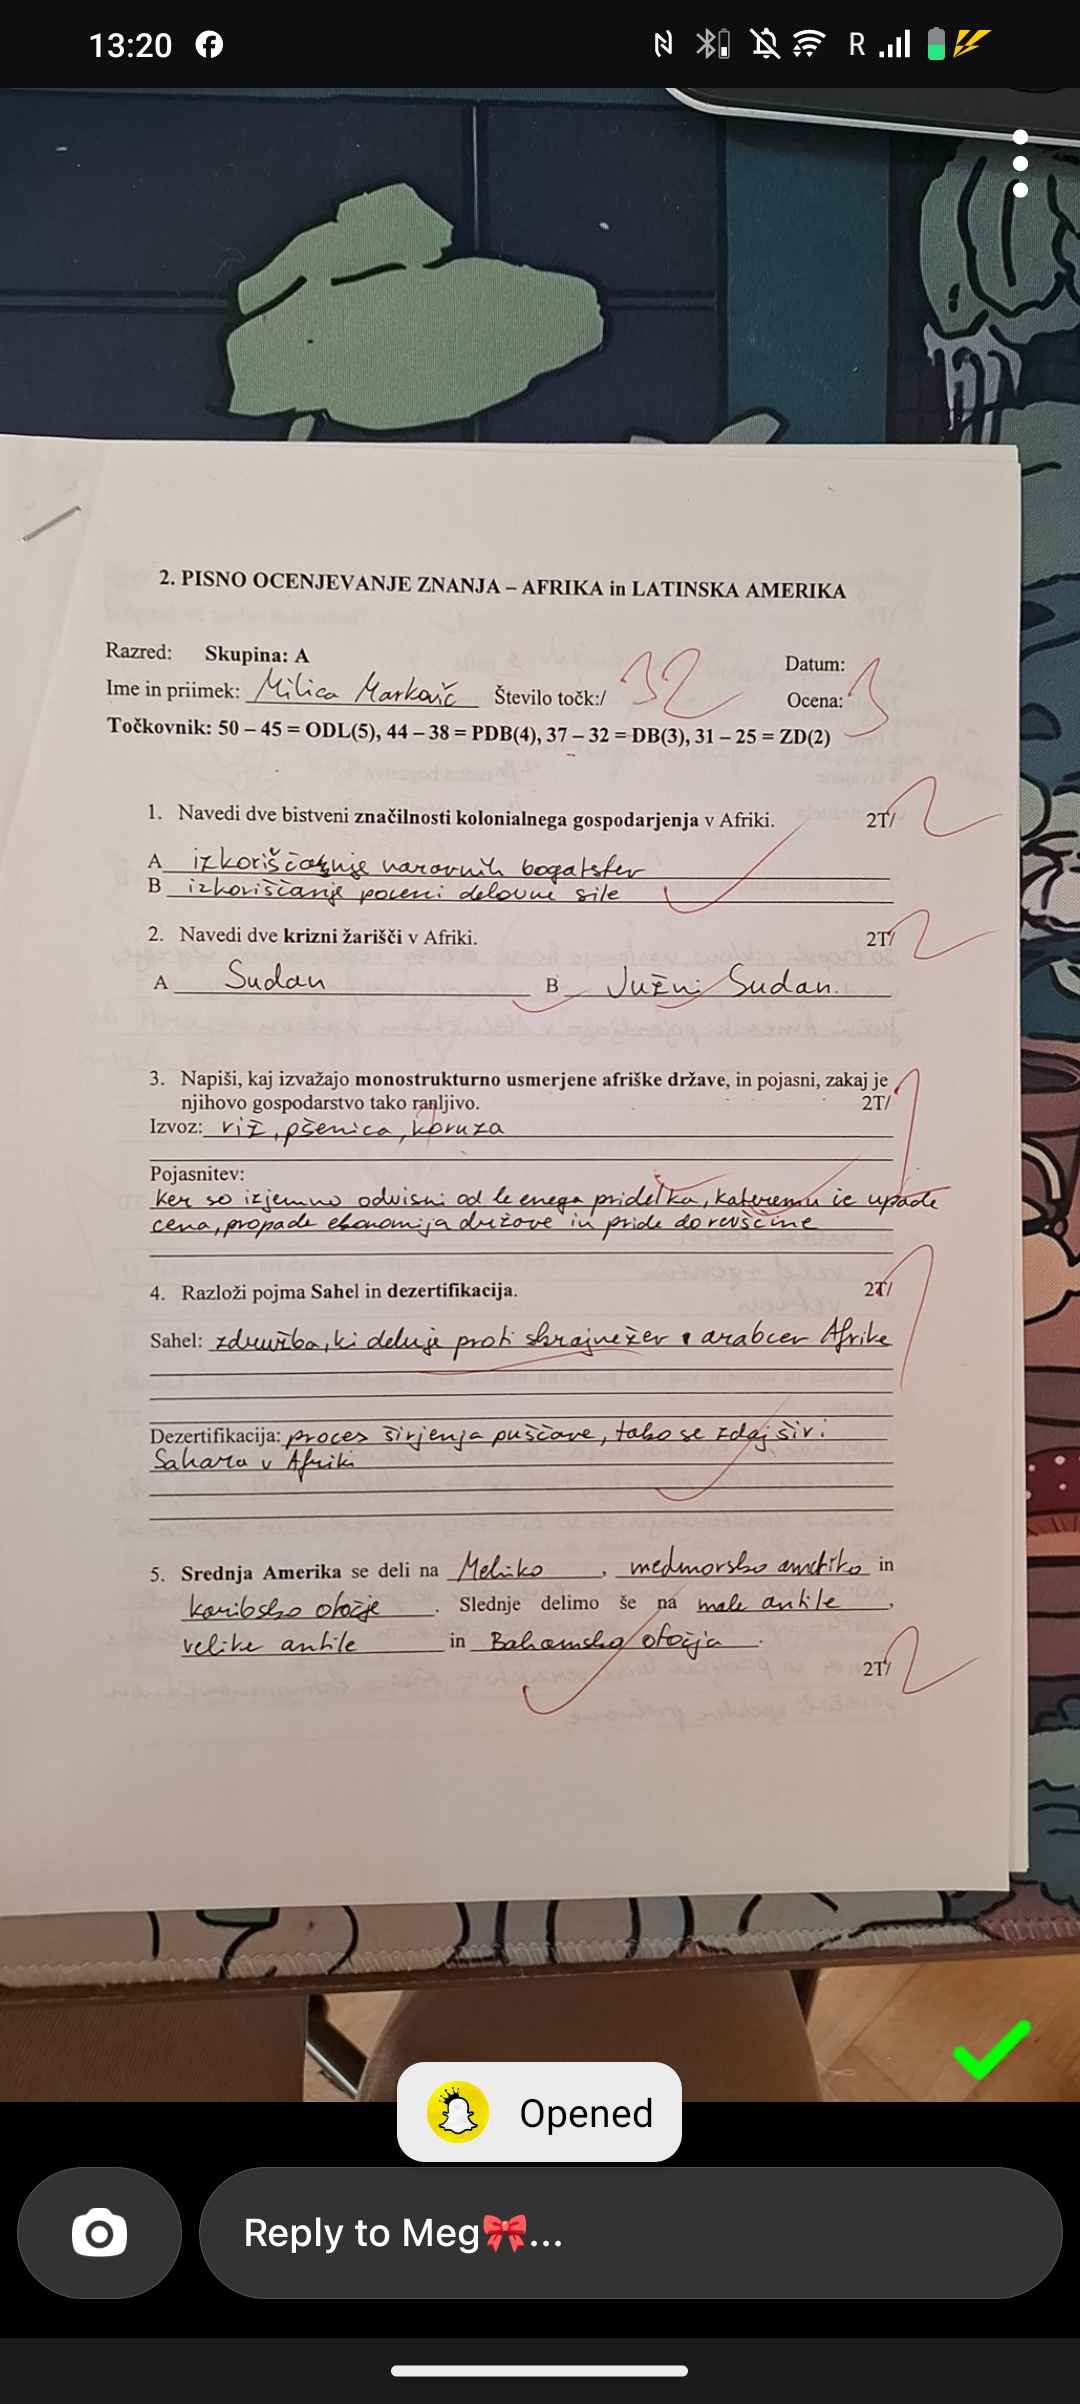 13:20
R
2. PISNO OCENJEVANJE ZNANJA – AFRIKA in LATINSKA AMERIKA
Razred: Skupina: A Datum:
Ime in priimek: Milica Marković Število točk:/ 32 Ocena: 3
Točkovnik: 50 – 45 = ODL(5), 44 – 38 = PDB(4), 37 – 32 = DB(3), 31 – 25 = ZD(2)
1. Navedi dve bistveni značilnosti kolonialnega gospodarjenja v Afriki. 2T/ 2
A izkoriščanje naravnih bogatstev
B izkoriščanje poceni delovne sile
2. Navedi dve krizni žarišči v Afriki. 2T/ 2
A Sudan B Južni Sudan.
3. Napiši, kaj izvažajo monostrukturno usmerjene afriške države, in pojasni, zakaj je
njihovo gospodarstvo tako ranljivo. 2T/ 1
Izvoz: riž, pšenica, koruza
Pojasnitev:
ker so izjemno odvisni od le enega pridelka, kateremu če upade
cena, propade ekonomija države in pride do revščine
4. Razloži pojma Sahel in dezertifikacija. 2T/ 1
Sahel: združba, ki deluje proti skrajnežev arabcev Afrike
Dezertifikacija: proces širjenja puščave, tako se zdaj širi
Sahara v Afriki
5. Srednja Amerika se deli na Mehiko, medmorsko ameriko in
karibsko otočje. Slednje delimo še na male antile,
velike antile in Bahamska otočja.
2T/ 2
Opened
Reply to Meg🎀...